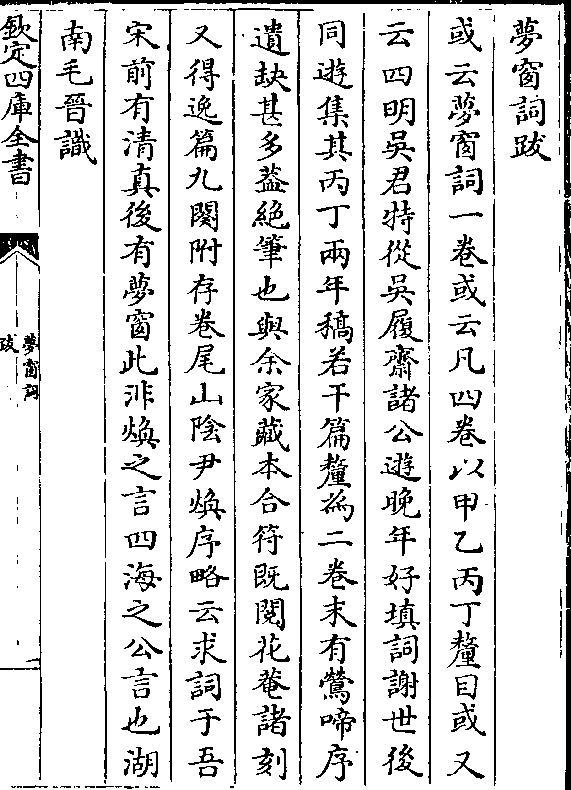 夢窗詞跋
或云夢窗詞一卷或云凡四卷以甲乙丙丁釐目或又
云四明吳君特從吳履齋諸公遊晚年好填詞謝世後
同遊集其丙丁兩年稿若干篇釐為二卷末有鶯啼序
遺缺甚多蓋絕筆也與余家藏本合符既閱花菴諸刻
又得逸篇九闋附存卷尾山陰尹煥序略云求詞于吾
宋前有清真後有夢窗此非煥之言四海之公言也湖
南毛晉識
欽定四庫全書
夢窗詞
跋